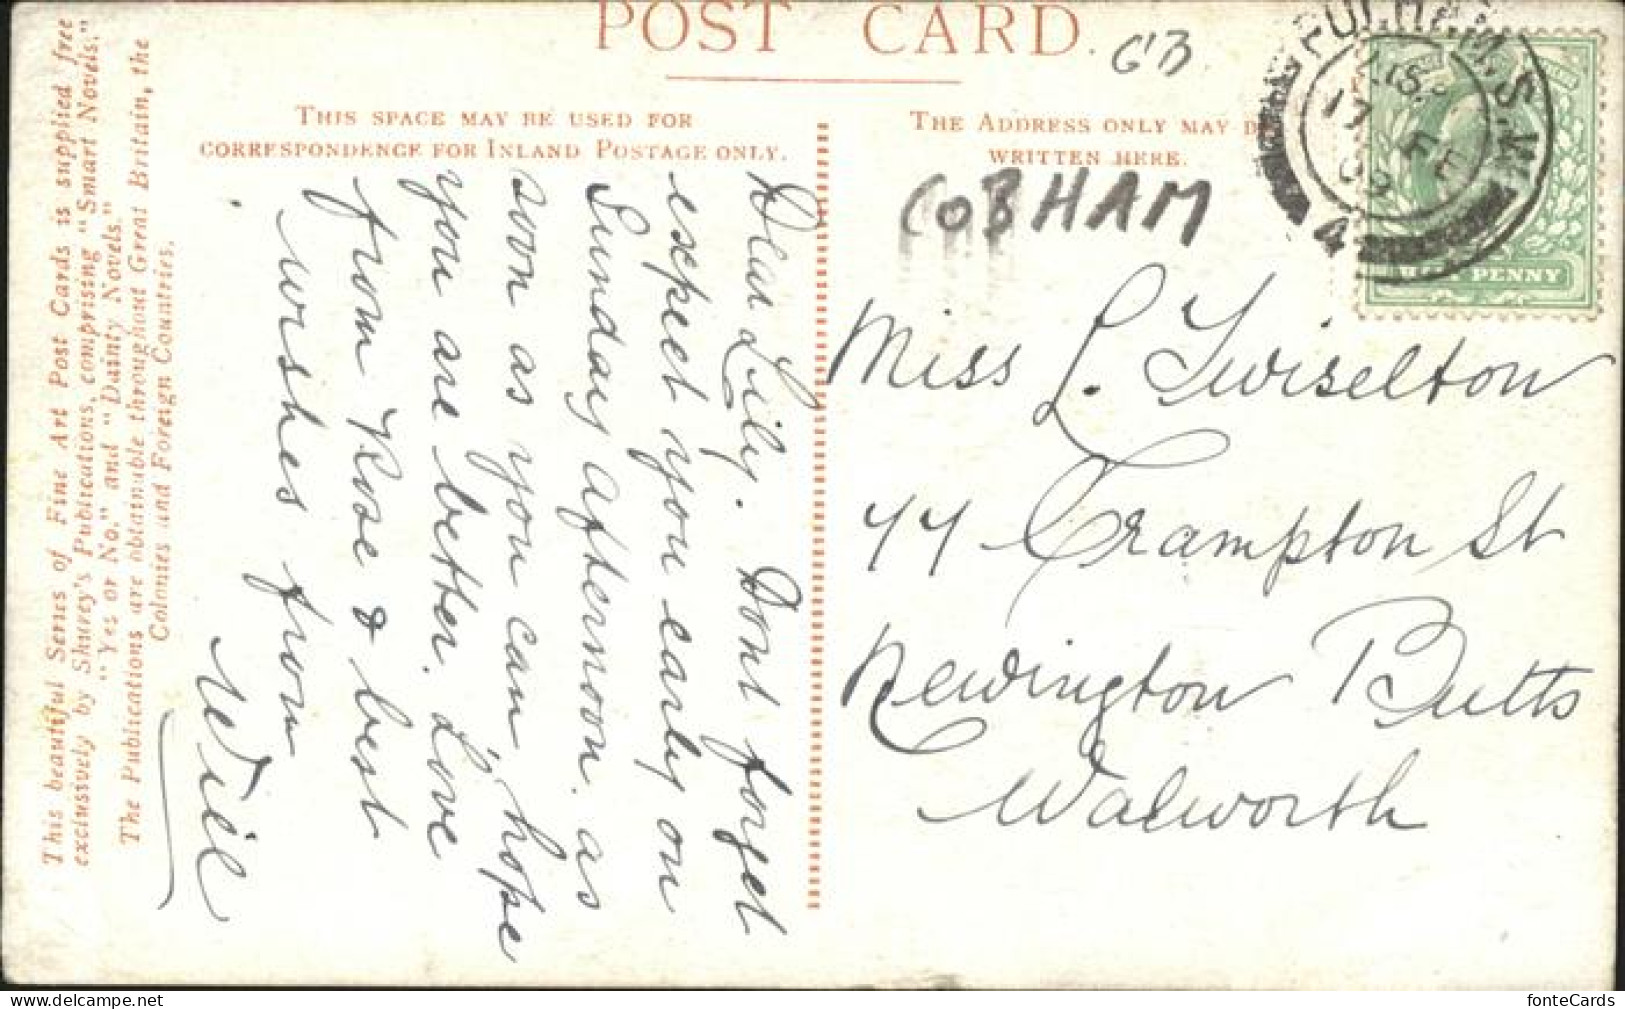 POST CARD
GB
THIS SPACE MAY BE USED FOR
CORRESPONDENCE FOR INLAND POSTAGE ONLY.
THE ADDRESS ONLY MAY B
WRITTEN HERE.
COBHAM
FULHAM. S.W.
17 FE
09
4
HALF PENNY
This beautiful Series of Fine Art Post Cards is supplied free
exclusively by Shurey's Publications, comprising "Smart Novels,"
"Yes or No," and "Dainty Novels."
The Publications are obtainable throughout Great Britain, the
Colonies and Foreign Countries.
Dear Lily. Dont forget
expect you early on
Sunday afternoon. as
soon as you can, hope
you are better. Love
from Rose & best
wishes from
Will
Miss L. Twiselton
44 Crampton St
Newington Butts
Walworth
fonteCards